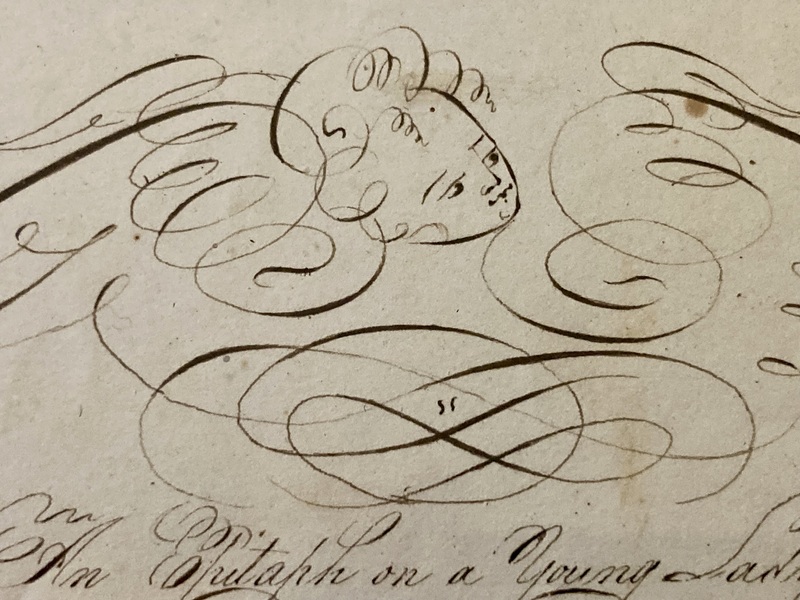 An Epitaph on a Young Lady